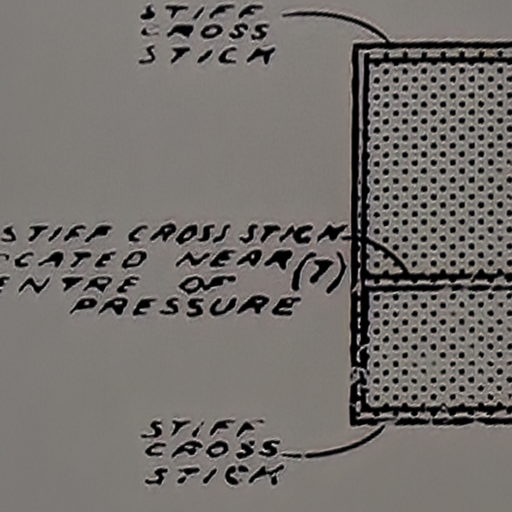 STIFF
CROSS
STICK
STIFF CROSS STICK
CATED NEAR (T)
NTRE OF
PRESSURE
STIFF
CROSS
STICK